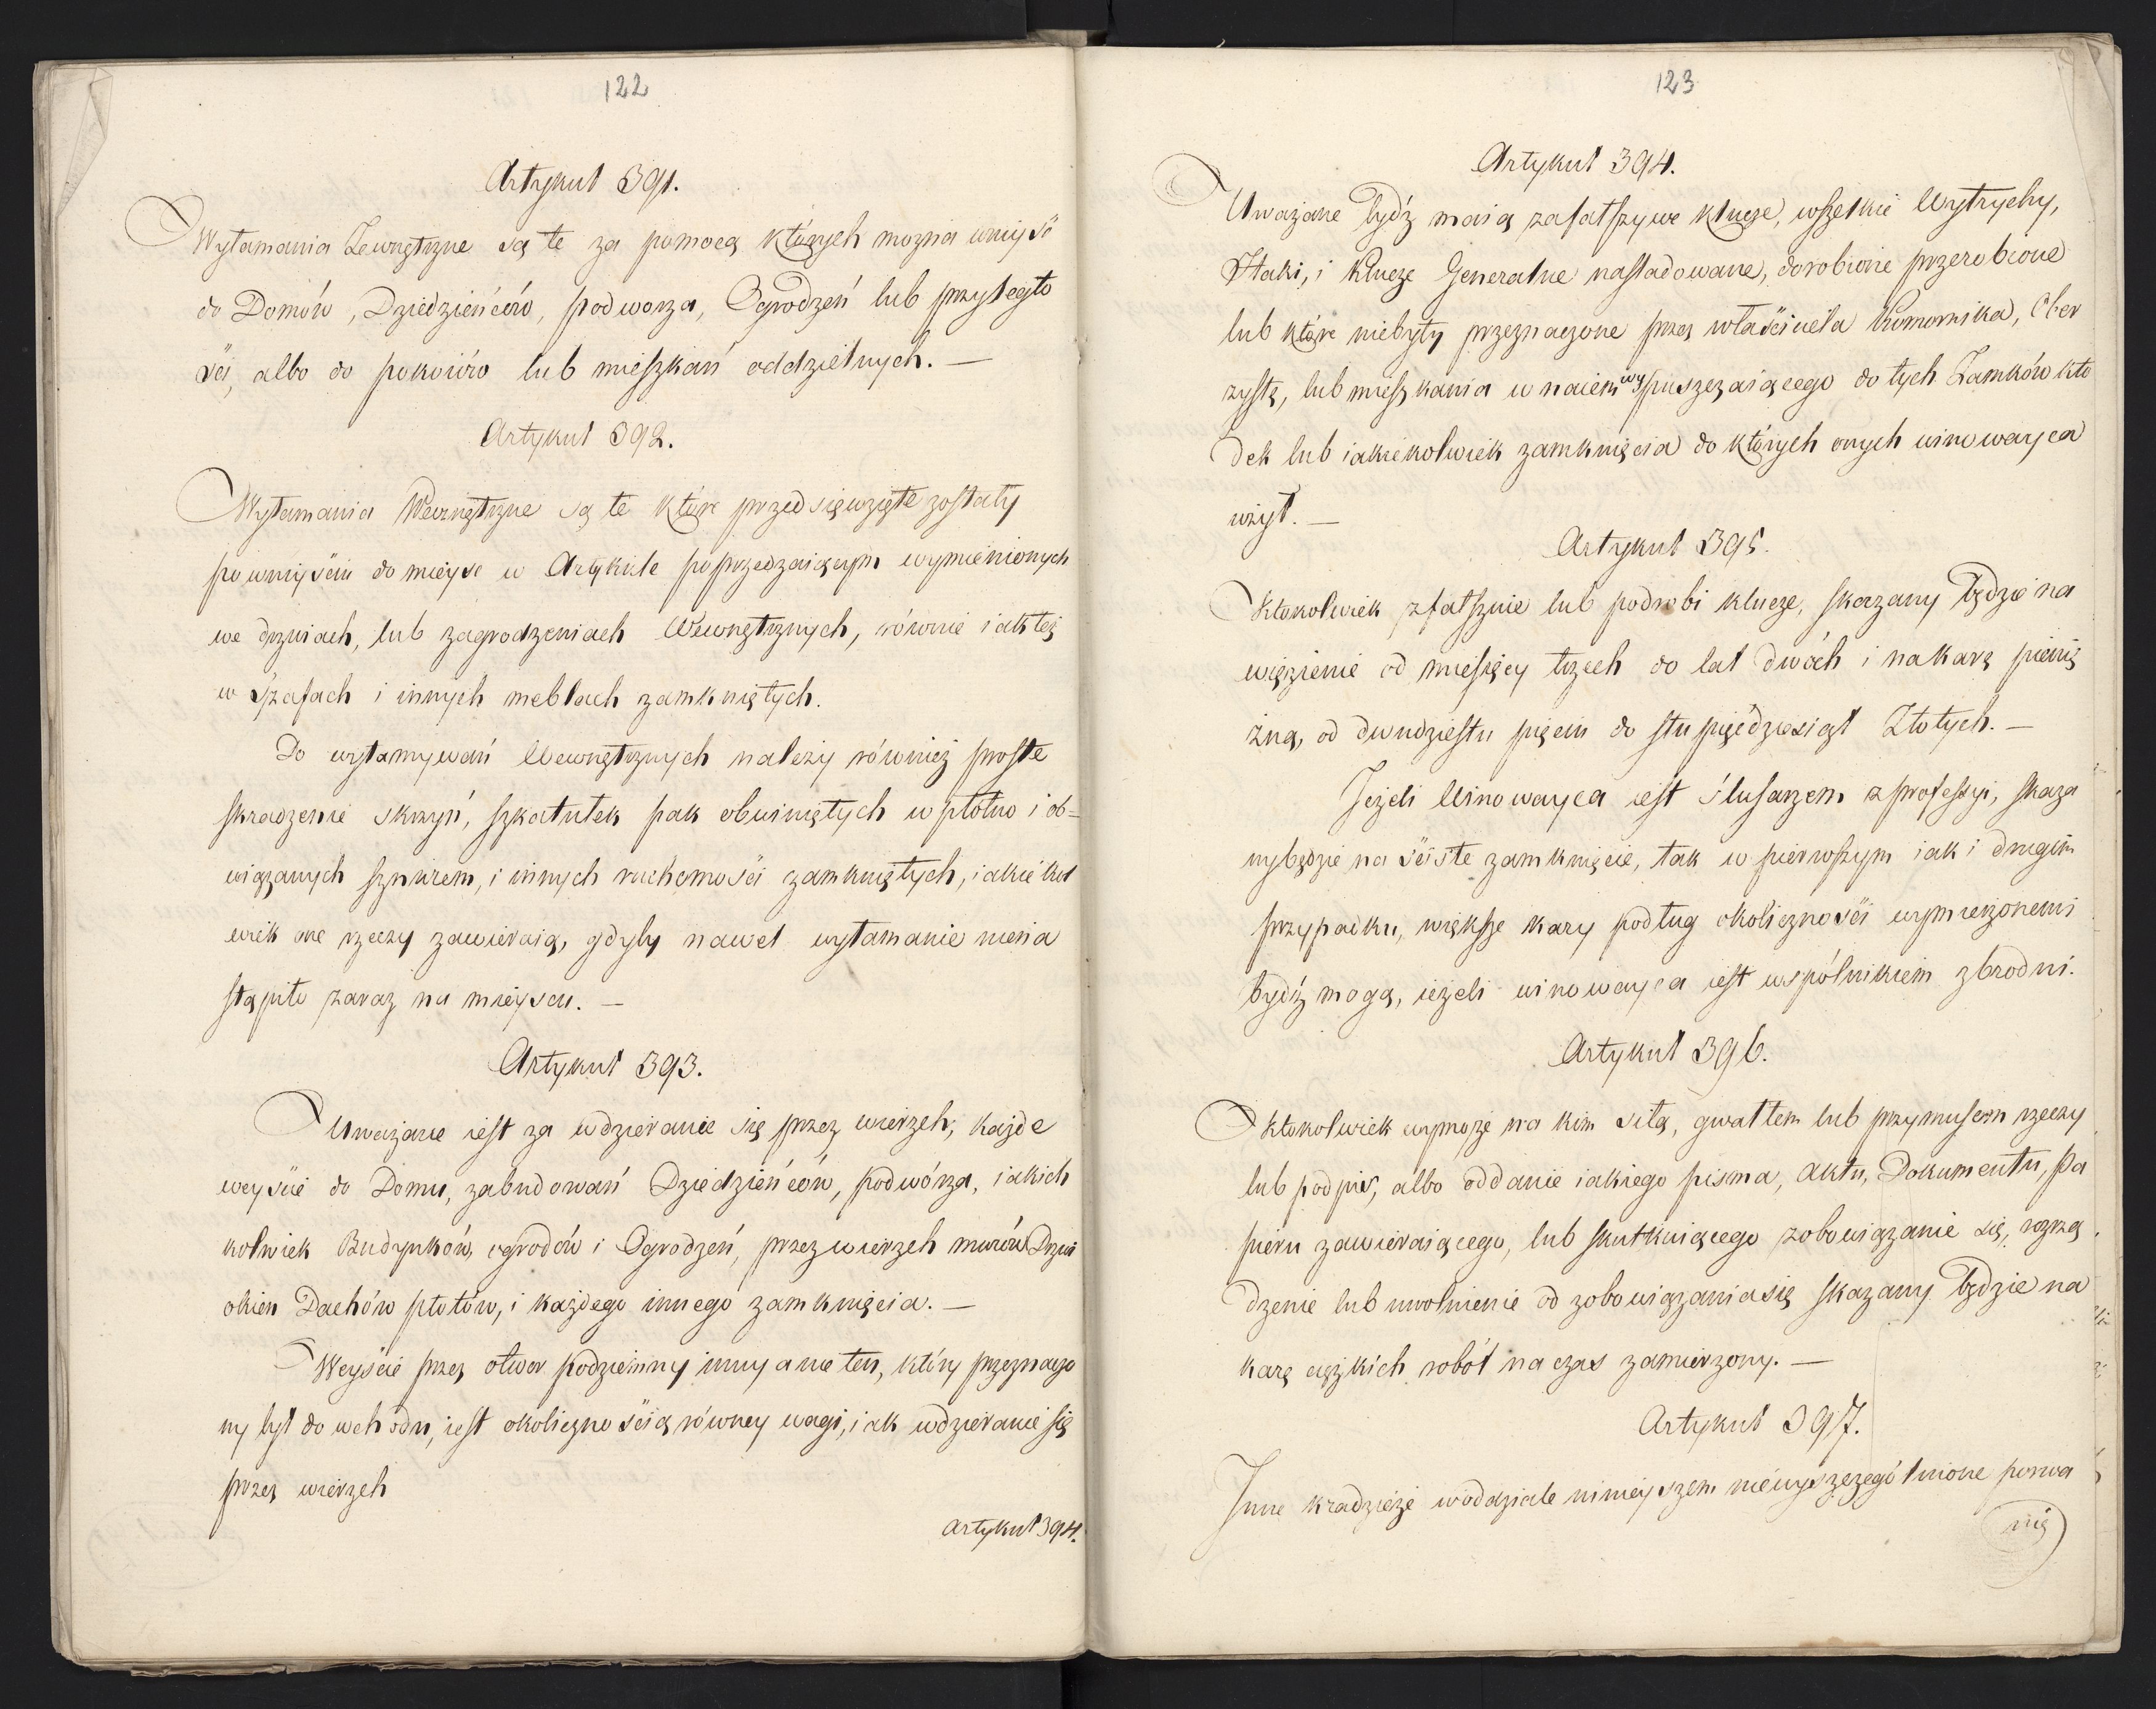 122
Artykuł 391.
Wyłamania Zewnętrzne są te za pomocą których można wniyść
do Domów, Dziedzieńców, podworza, Ogrodzeń lub przyległo
ści, albo do pokoiów lub mieszkań oddzielnych. —
Artykuł 392.
Wyłamania Wewnętrzne są te które przedsięwzięte zostały
po wniyściu do mieysc w Artykule poprzedzaiącym wymienionych
we drzwiach, lub zagrodzeniach Wewnętrznych, równie iak też
w Szafach i innych meblach zamkniętych.
Do wyłamywań Wewnętrznych należy również proste
skradzenie skrzyń, szkatułek pak obwiniętych w płótno i ob=
wiązanych sznurem, i innych ruchomości zamkniętych, iakiekol
wiek one rzeczy zawieraią, gdyby nawet wyłamanie niena
stąpiło zaraz na mieyscu. —
Artykuł 393.
Uważane iest za wdzieranie się przez wierzch, każde
weyście do Domu, zabudowań Dziedzieńców, podwórza, iakich
kolwiek Budynków, ogrodów i Ogrodzeń, przez wierzch murów Drzwi
okien Dachów płotów, i każdego innego zamknięcia. —
Weyście przez otwor podziemny inny a nie ten, który przeznaczo
ny był do wchodu, iest okolicznością równey wagi, iak wdzieranie się
przez wierzch
Artykuł 394.
123
Artykuł 394.
Uważane bydź maią za fałszywe klucze, wszelkie Wytrychy,
Haki, i klucze Generalne nasladowane, dorobione przerobione
lub które niebyły przeznaczone przez właściciela Komornika, Ober
zystę, lub mieszkania w naiem wypuszczaiącego do tych Zamków kło
dek lub iakiekolwiek zamknięcia do których onych winowayca
użył. —
Artykuł 395.
Ktokolwiek zfałszuie lub podrobi klucze, skazany będzie na
więzienie od miesięcy trzech do lat dwóch i na karę pienię
żną, od dwudziestu pięciu do stu pięćdziesiąt Złotych. —
Jeżeli Winowayca iest ślusarzem z professyi, skaza
ny będzie na ściste zamknięcie, tak w pierwszym iak i drugim
przypadku, większe kary podług okoliczności wymierzonemi
bydź mogą, ieżeli winowayca iest wspólnikiem zbrodni.
Artykuł 396.
Ktokolwiek wymoże na kim siłą, gwałtem lub przymusem rzeczy
lub podpis, albo oddanie iakiego pisma, aktu, Dokumentu, pa
pieru zawieraiącego, lub skutkuiącego zobowiązanie się, rozrzą
dzenie lub uwolnienie od zobowiązania się skazany będzie na
karę ciężkich robót na czas zamierzony. —
Artykuł 397.
Inne kradzieże w oddziale ninieyszem niewyszczegółnione porwa
nię